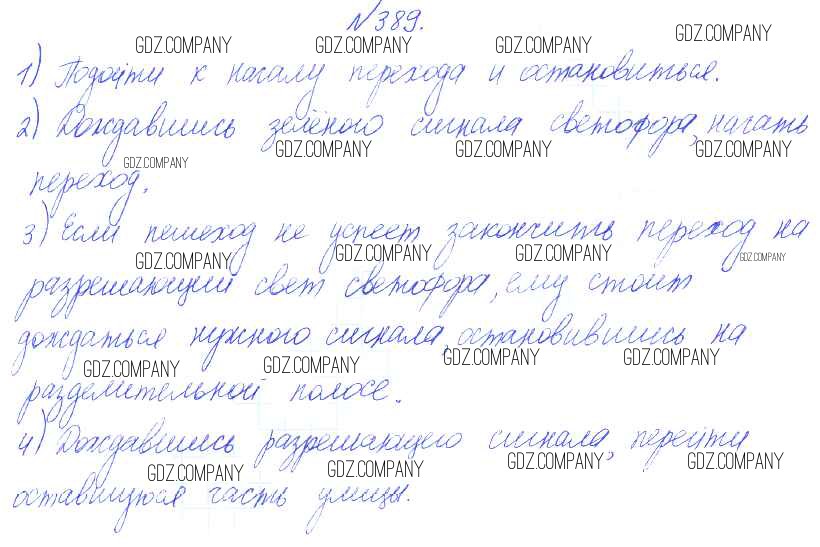 №389.
GDZ.COMPANY GDZ.COMPANY GDZ.COMPANY GDZ.COMPANY
1) Подойти к началу перехода и остановиться.
2) Дождавшись зелёного сигнала светофора, начать
GDZ.COMPANY GDZ.COMPANY GDZ.COMPANY GDZ.COMPANY
переход.
3) Если пешеход не успеет закончить переход на
GDZ.COMPANY GDZ.COMPANY GDZ.COMPANY GDZ.COMPANY
разрешающий свет светофора, ему стоит
дождаться нужного сигнала, остановившись на
GDZ.COMPANY GDZ.COMPANY GDZ.COMPANY GDZ.COMPANY
разделительной полосе.
4) Дождавшись разрешающего сигнала, перейти
GDZ.COMPANY GDZ.COMPANY GDZ.COMPANY GDZ.COMPANY
оставшуюся часть улицы.